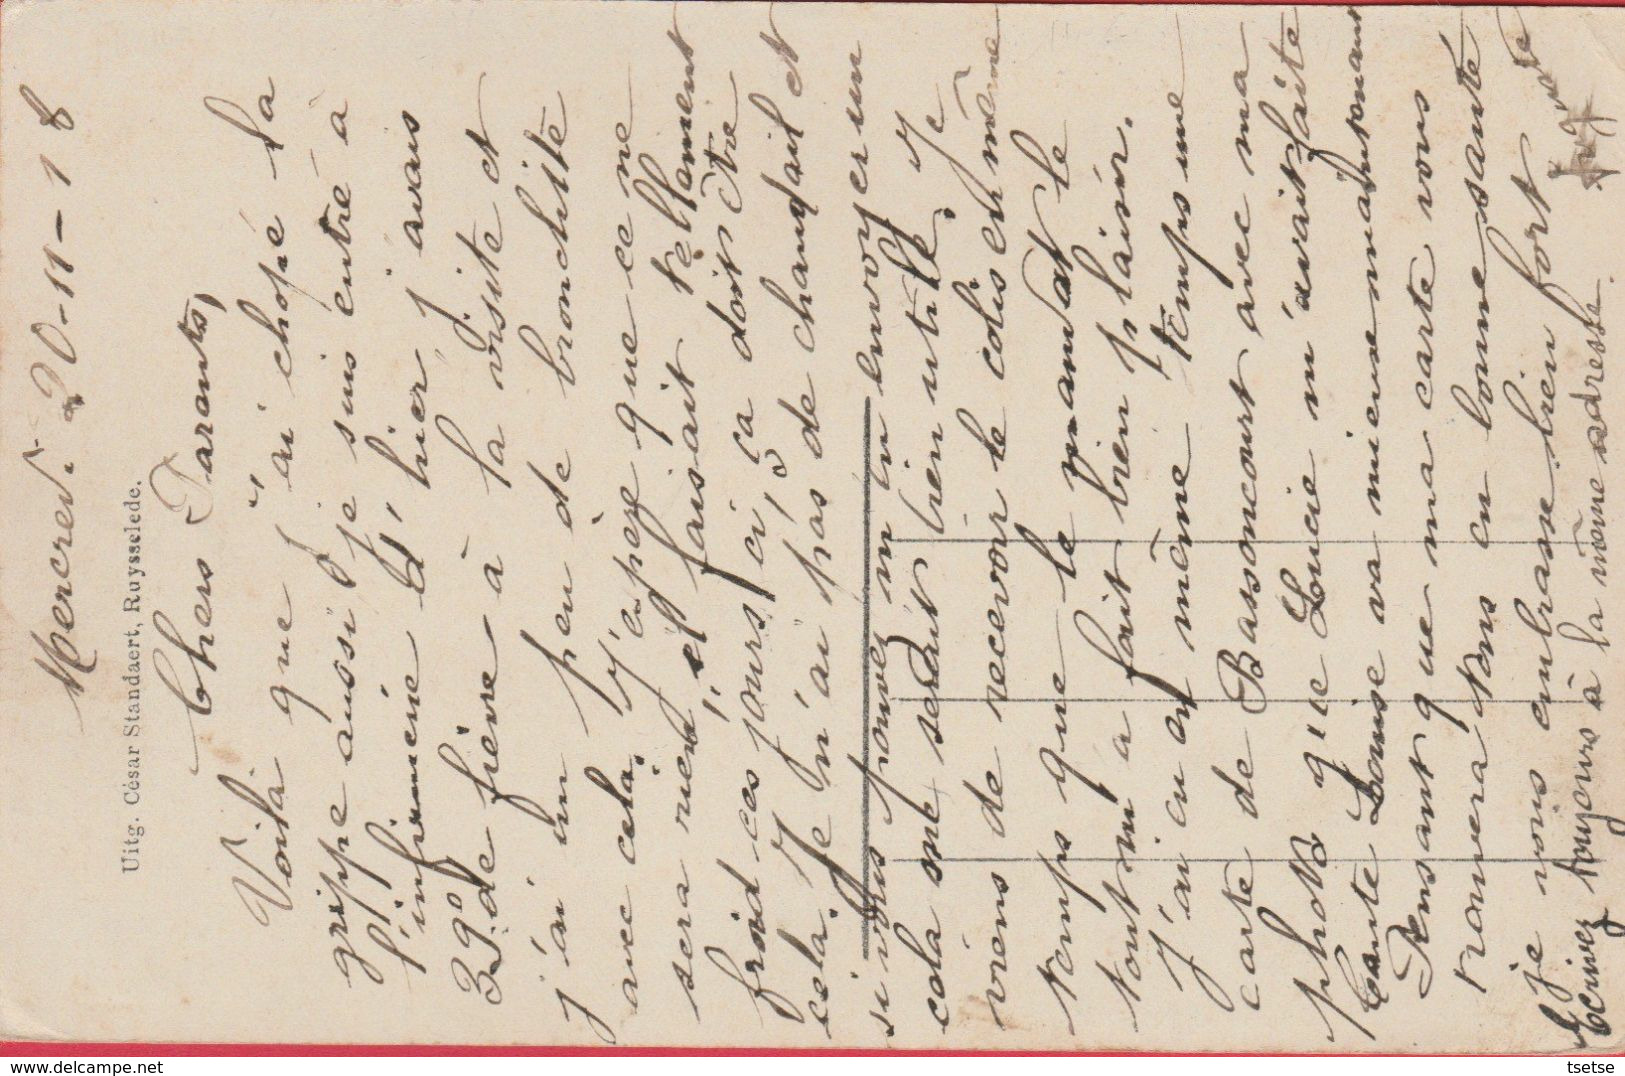 Mercredi 20-11-18
Uitg. César Standaert, Ruysselede.
Chers Parents,
Voila que j'ai chopé la
grippe aussi je suis entré à
l'infirmerie d'hier j'avais
39° de fièvre à la visite et
j'ai un peu de bronchite
avec cela. J'espère que ce ne
sera rien, il faisait tellement
froid ces jours ci ça doit être
cela. Je n'ai pas de chandail et
si vous pouvez m'en envoyer un
cela me serait bien utile. Je
viens de recevoir le colis en même
temps que le mandat le
tout m'a fait bien plaisir.
J'ai eu en même temps une
carte de Bassoncourt avec ma
photo que Lucie m'avait faite
tante Louise va mieux maintenant
Pensant que ma carte vous
trouvera tous en bonne santé
je vous embrasse bien fort
Ecrivez toujours à la même adresse.
delcampe.net
tsetse